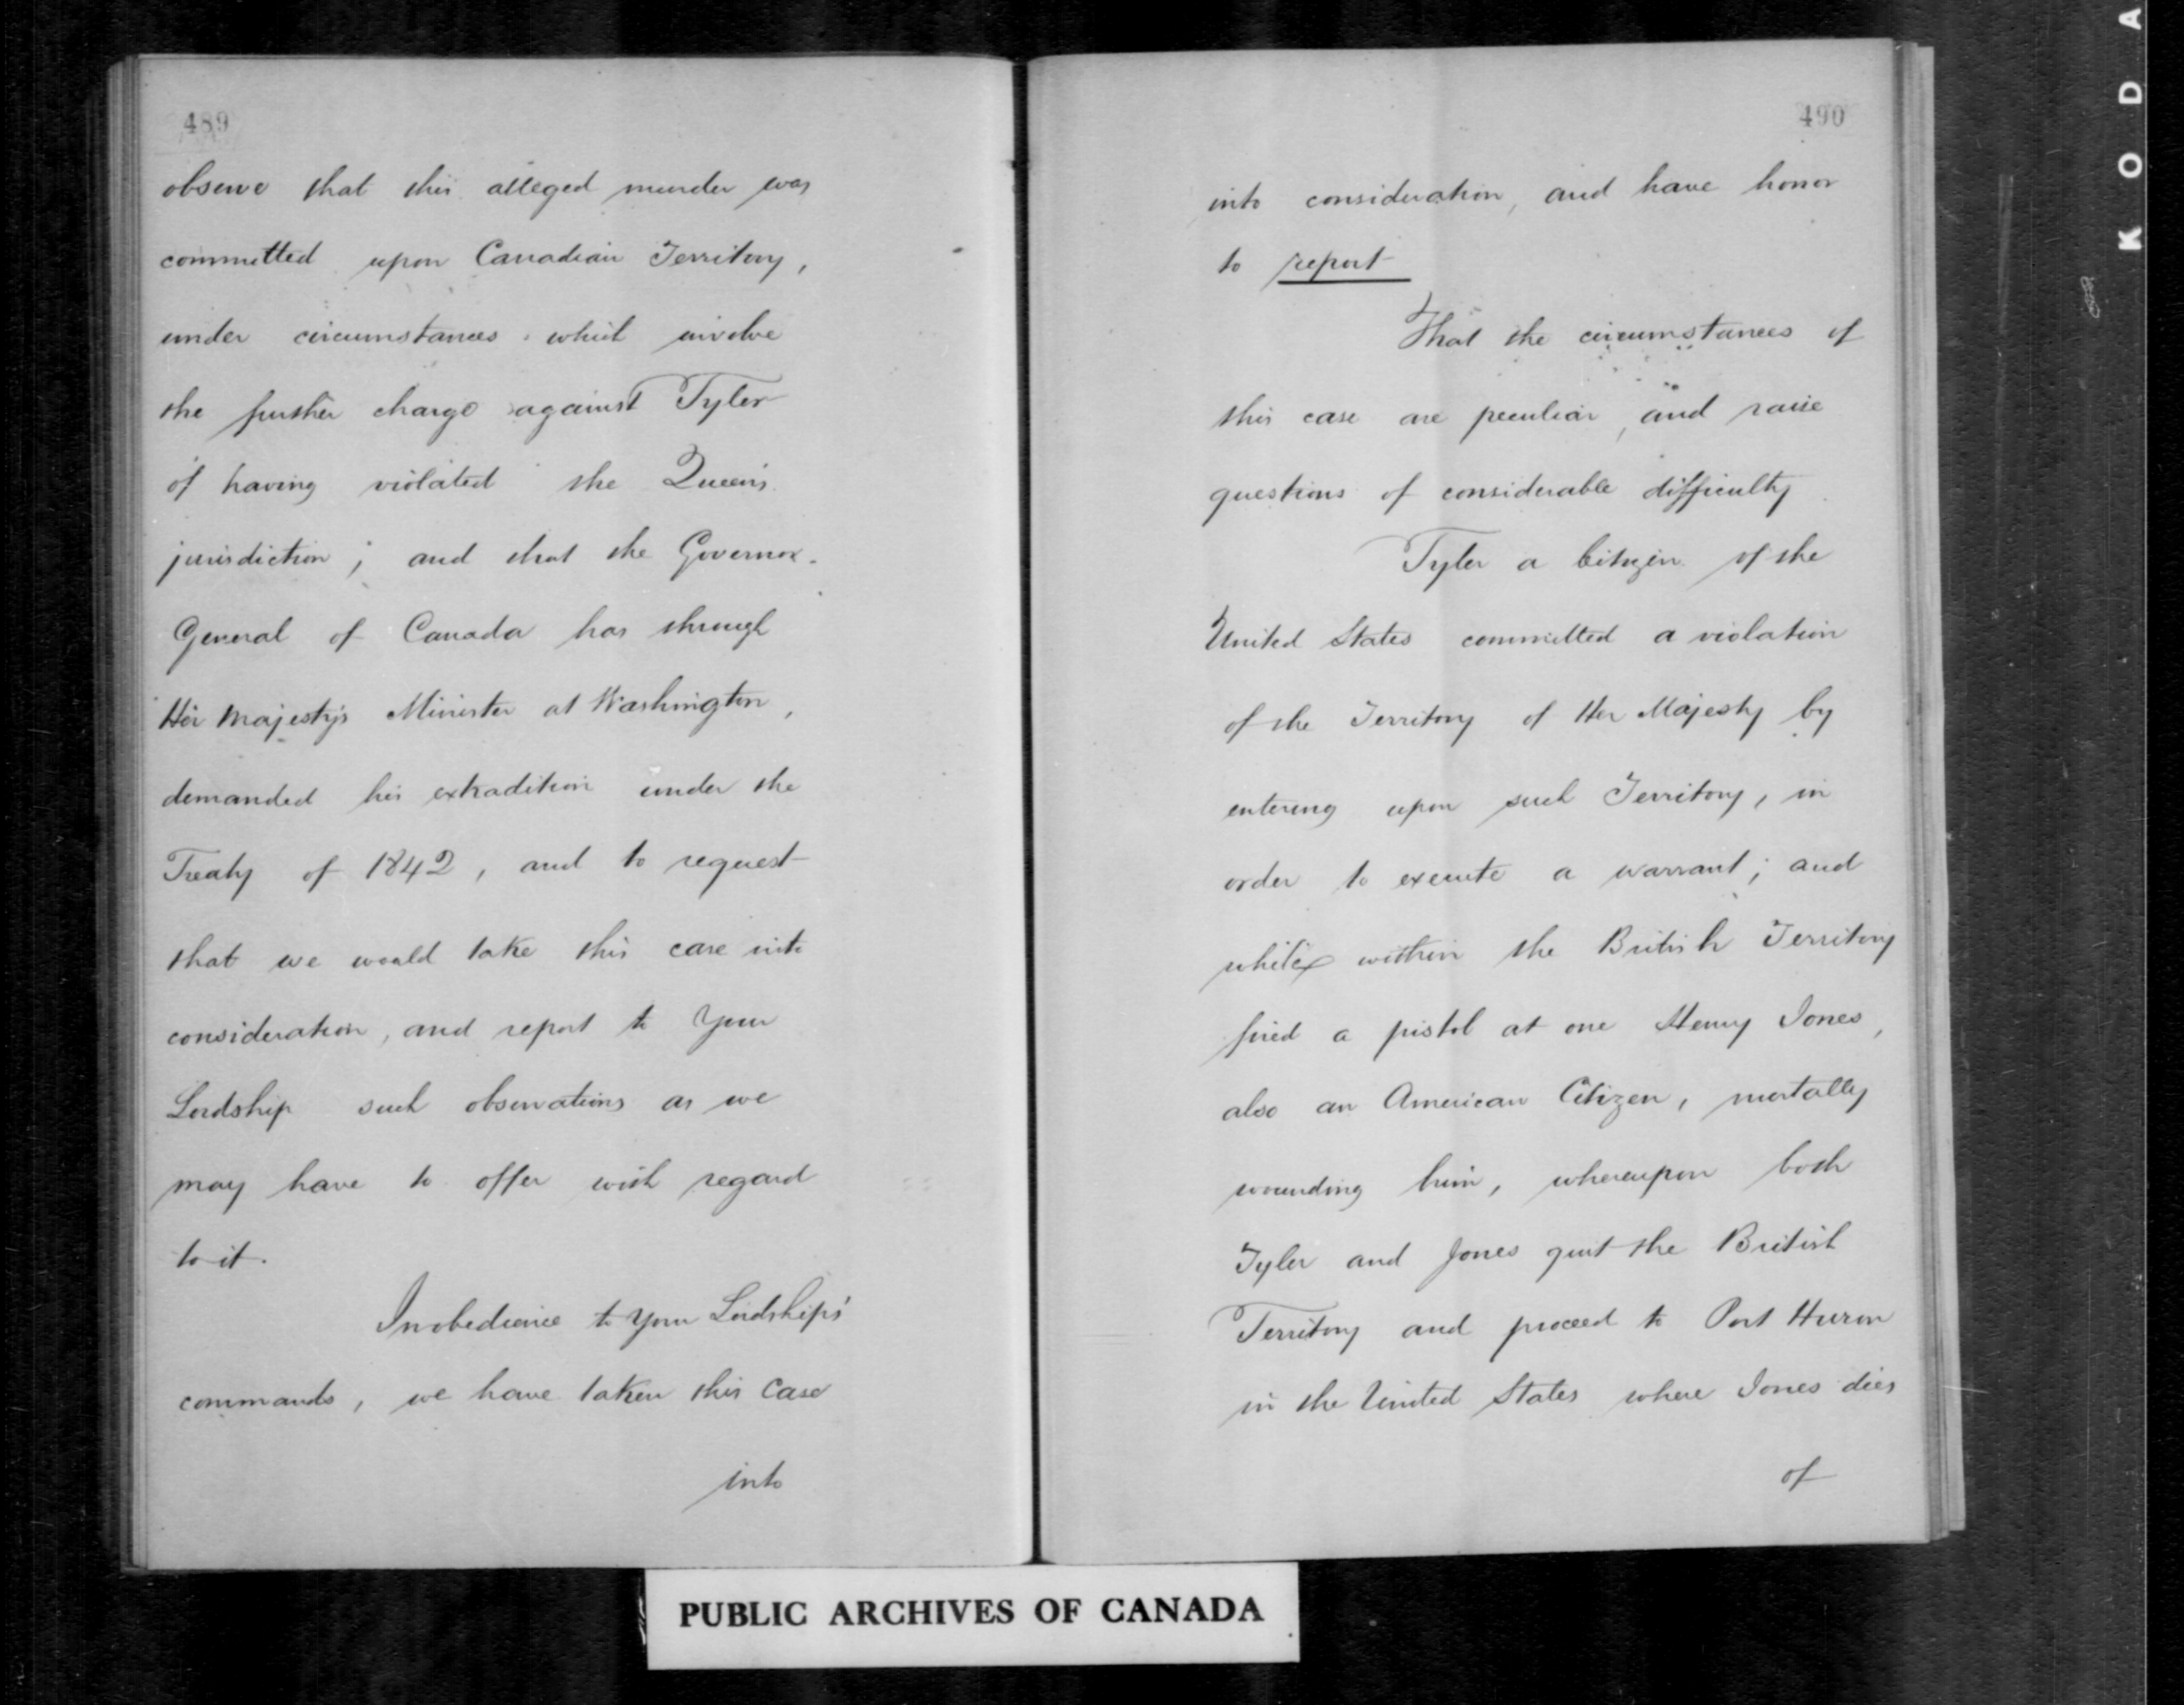 489
observe that this alleged murder was
committed upon Canadian Territory,
under circumstances which involve
the further charge against Tyler
of having violated the Queen's
jurisdiction; and that the Governor-
General of Canada has through
Her Majesty's Minister at Washington,
demanded his extradition under the
Treaty of 1842, and to request
that we would take this case into
consideration, and report to Your
Lordship such observations as we
may have to offer with regard
to it.
In obedience to Your Lordships'
commands, we have taken this Case
into
490
into consideration, and have honor
to report
That the circumstances of
this case are peculiar, and raise
questions of considerable difficulty
Tyler a Citizen of the
United States committed a violation
of the Territory of Her Majesty by
entering upon such Territory, in
order to execute a warrant; and
while within the British Territory
fired a pistol at one Henry Jones,
also an American Citizen, mortally
wounding him, whereupon both
Tyler and Jones quit the British
Territory and proceed to Port Huron
in the United States where Jones dies
of
PUBLIC ARCHIVES OF CANADA
K O D A